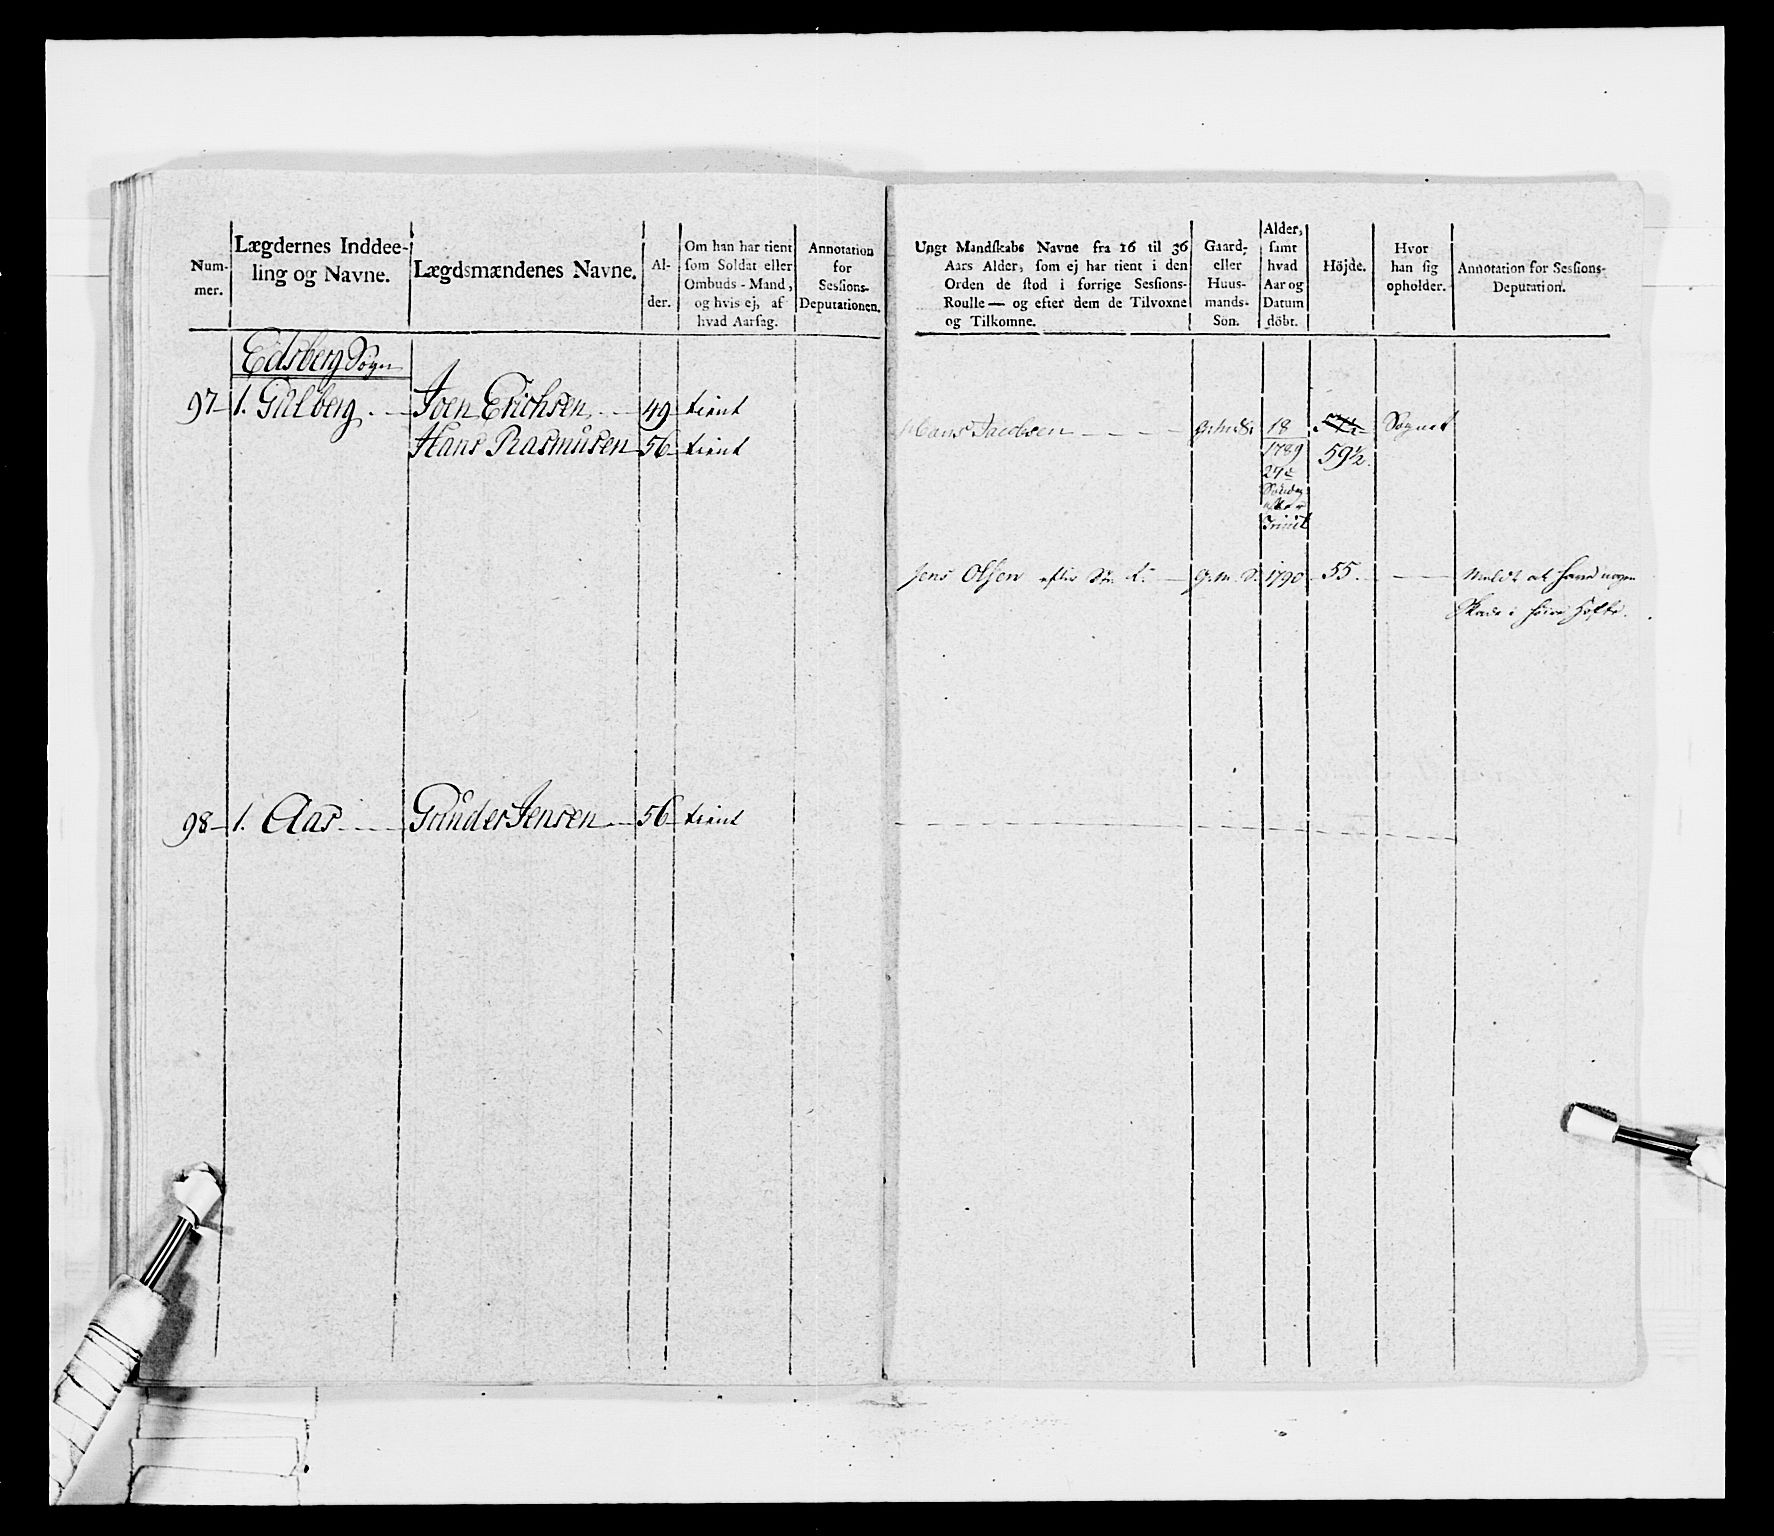 Num-
mer.
Lægdernes Inddee-
ling og Navne.
Lægdsmændenes Navne.
Al-
der.
Om han har tient
som Soldat eller
Ombuds-Mand,
og hvis ej, af
hvad Aarsag.
Annotation
for
Sessions-
Deputationen.
Edsberg Sogn
97 1. Gulberg Joen Erichsen 49 tient
Hans Rasmusen 56 tient
98 1. Aas Gunder Jensen 56 tient
Ungt Mandskabs Navne fra 16 til 36
Aars Alder, som ej har tient i den
Orden de stod i forrige Sessions-
Roulle — og efter dem de Tilvoxne
og Tilkomne.
Gaard-
eller
Huus-
mands-
Sön.
Alder,
samt
hvad
Aar og
Datum
döbt.
Höjde.
Hvor
han sig
opholder.
Annotation for Sessions-
Deputation.
Hans Jacobsen 18 Sognet
1789 59½
27de
Søndag
efter
Trinit
Jens Olsen efter G. M. S. 1790 55 Meldt at have nogen
Skade i høire Hofte.